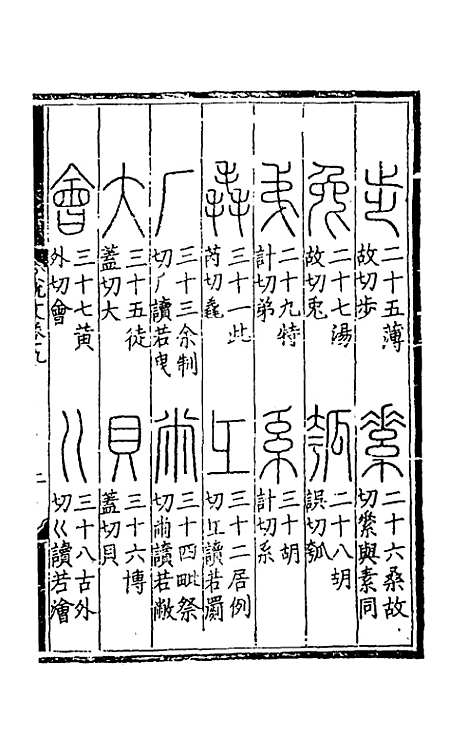 步
二十五薄
故切步
素
二十六桑故
切䋤與素同
兔
二十七湯
故切兔
瓠
二十八胡
誤切瓠
弟
二十九特
計切弟
系
三十胡
計切系
毳
三十一此
芮切毳
彑
三十二居例
切彑讀若罽
厂
三十三余制
切厂讀若曳
㡀
三十四毗祭
切㡀讀若敝
大
三十五徒
蓋切大
貝
三十六博
蓋切貝
會
三十七黃
外切會
巜
三十八古外
切巜讀若澮